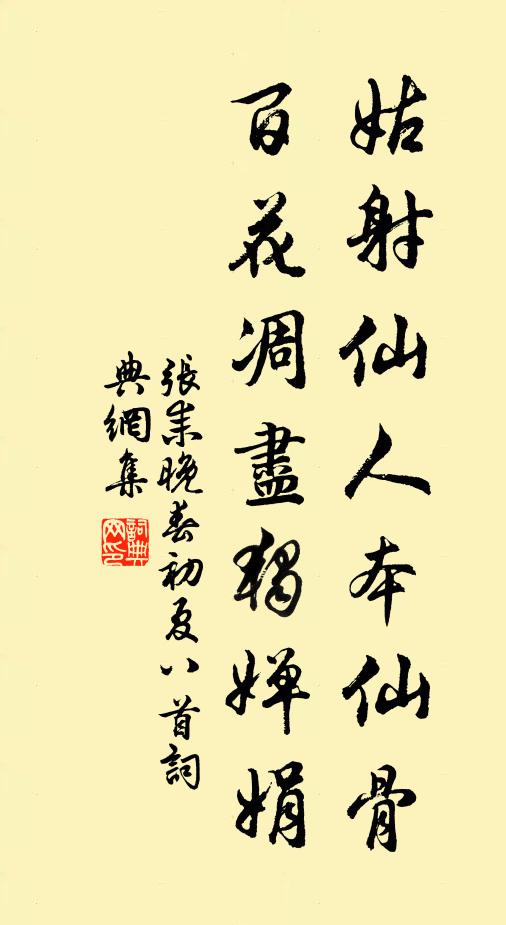 姑射仙人本仙骨
百花凋盡獨嬋娟
張耒晚春初夏八首詞
典網集
詞典網印